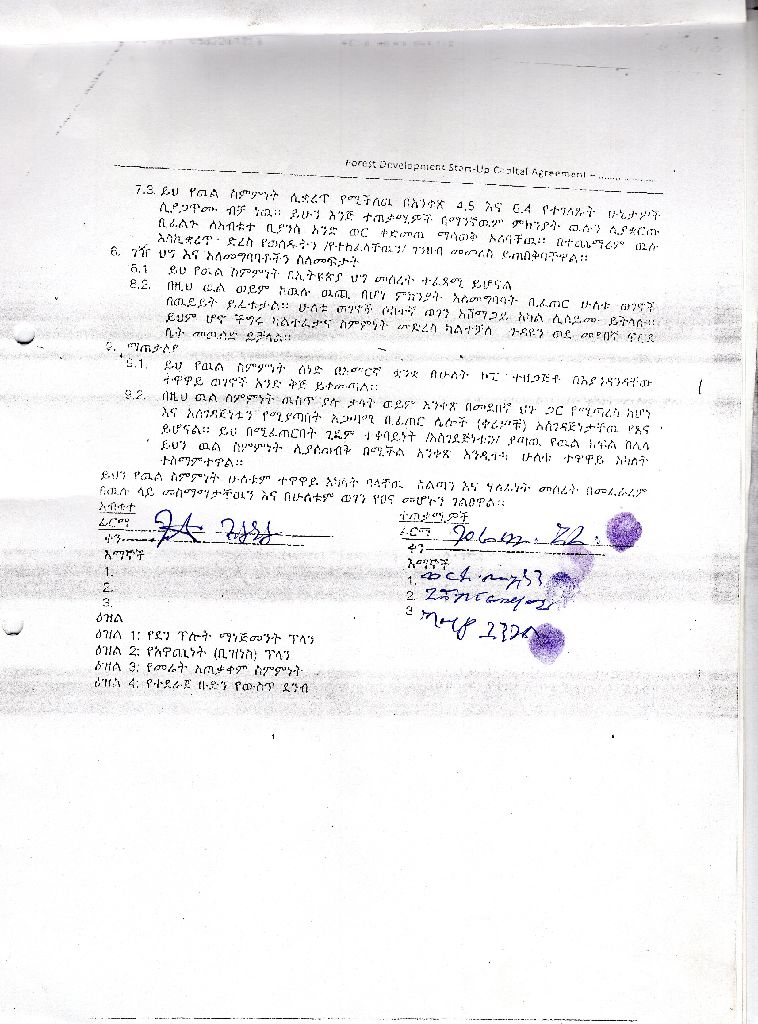 Forest Development Start-Up Capital Agreement – ..........
7.3. ይህ የዉል ስምምነት ሊቋረጥ የሚችለዉ በአንቀጽ 4.5 እና 6.4 የተገለጹት ሁኔታዎች
ሲያጋጥሙ ብቻ ነዉ፡፡ ይሁን እንጅ ተጠቃሚዎች በማንኛዉም ምክንያት ዉሉን ሊያቋርጡ
ቢፈልጉ ለአብቁተ ቢያንስ አንድ ወር ቀድመዉ ማሳወቅ አለባቸዉ፡፡ በተጨማሪም ዉሉ
እስኪቋረጥ ድረስ የወሰዱትን /የተከፈላቸዉን/ ገንዘብ መመረስ ይጠበቅባቸዋል፡፡
8. ገዥ ህግ እና አለመግባባቶችን ስለመፍታት
8.1. ይህ የዉል ስምምነት በኢትዩጵያ ህግ መሰረት ተፈጻሚ ይሆናል
8.2. በዚህ ዉል ወይም ከዉሉ ዉጪ በሆነ ምክንያት አለመግባባት ቢፈጠር ሁለቱ ወገኖች
በዉይይት ይፈቱታል፡፡ ሁለቱ ወገኖች ሶስተኛ ወገን አሸማጋይ አካል ሊሰይሙ ይችላሉ፡፡
ይህም ሆኖ ችግሩ ካልተፈታና ስምምነት መድረስ ካልተቻለ ጉዳዩን ወደ መደበኛ ፍርድ
ቤት መዉሰድ ይቻላል፡፡
9. ማጠታለያ
9.1. ይህ የዉል ስምምነት ሰነድ በአማርኛ ቋንቋ በሁለት ኮፒ ተዘጋጅቶ በእያንዳንዳቸው
ተዋዋይ ወገኖች እንድ ቅጅ ይቀመጣል፡፡
9.2. በዚህ ዉል ስምምነት ዉስጥ ያሉ ቃላት ወይም አንቀጽ በመደበኛ ህጉ ጋር የሚጣረስ ከሆነ
እና አስገዳጅነቱን የሚያጣበት አጋጣሚ ቢፈጠር ሌሎች (ቀሪዎቹ) አስገዳጅነታቸዉ የፀና
ይሆናል፡፡ ይህ በሚፈጠርበት ጊዜም ተቀባይነት /አስገደጅነቱን/ ያጣዉ የዉል ክፍል በሌላ
ይህን ዉል ስምምነት ሊያስጠብቅ በሚችል አንቀጽ እንዲተካ ሁለቱ ተዋዋይ አካላት
ተስማምተዋል፡፡
ይህን የዉል ስምምነት ሁለቱም ተዋዋይ አካላት ባላቸዉ ስልጣን እና ሃላፊነት መሰረት በመፈራረም
በዉሉ ላይ መስማማታቸዉን እና በሁለቱም ወገን የፀና መሆኑን ገልፀዋል፡፡
አብቁተ
ፊርማ
ቀን
እማኞች
1.
2.
3.
ተጠቃሚዎች
ፊርማ
ቀን
እማኞች
1.
2.
3
ዕዝል
ዕዝል 1: የደን ፕሎት ማነጅመንት ፕላን
ዕዝል 2: የአዋጪነት (ቢዝነስ) ፕላን
ዕዝል 3: የመሬት አጠቃቀም ስምምነት
ዕዝል 4: የተደራጀ ቡድን የውስጥ ደንብ